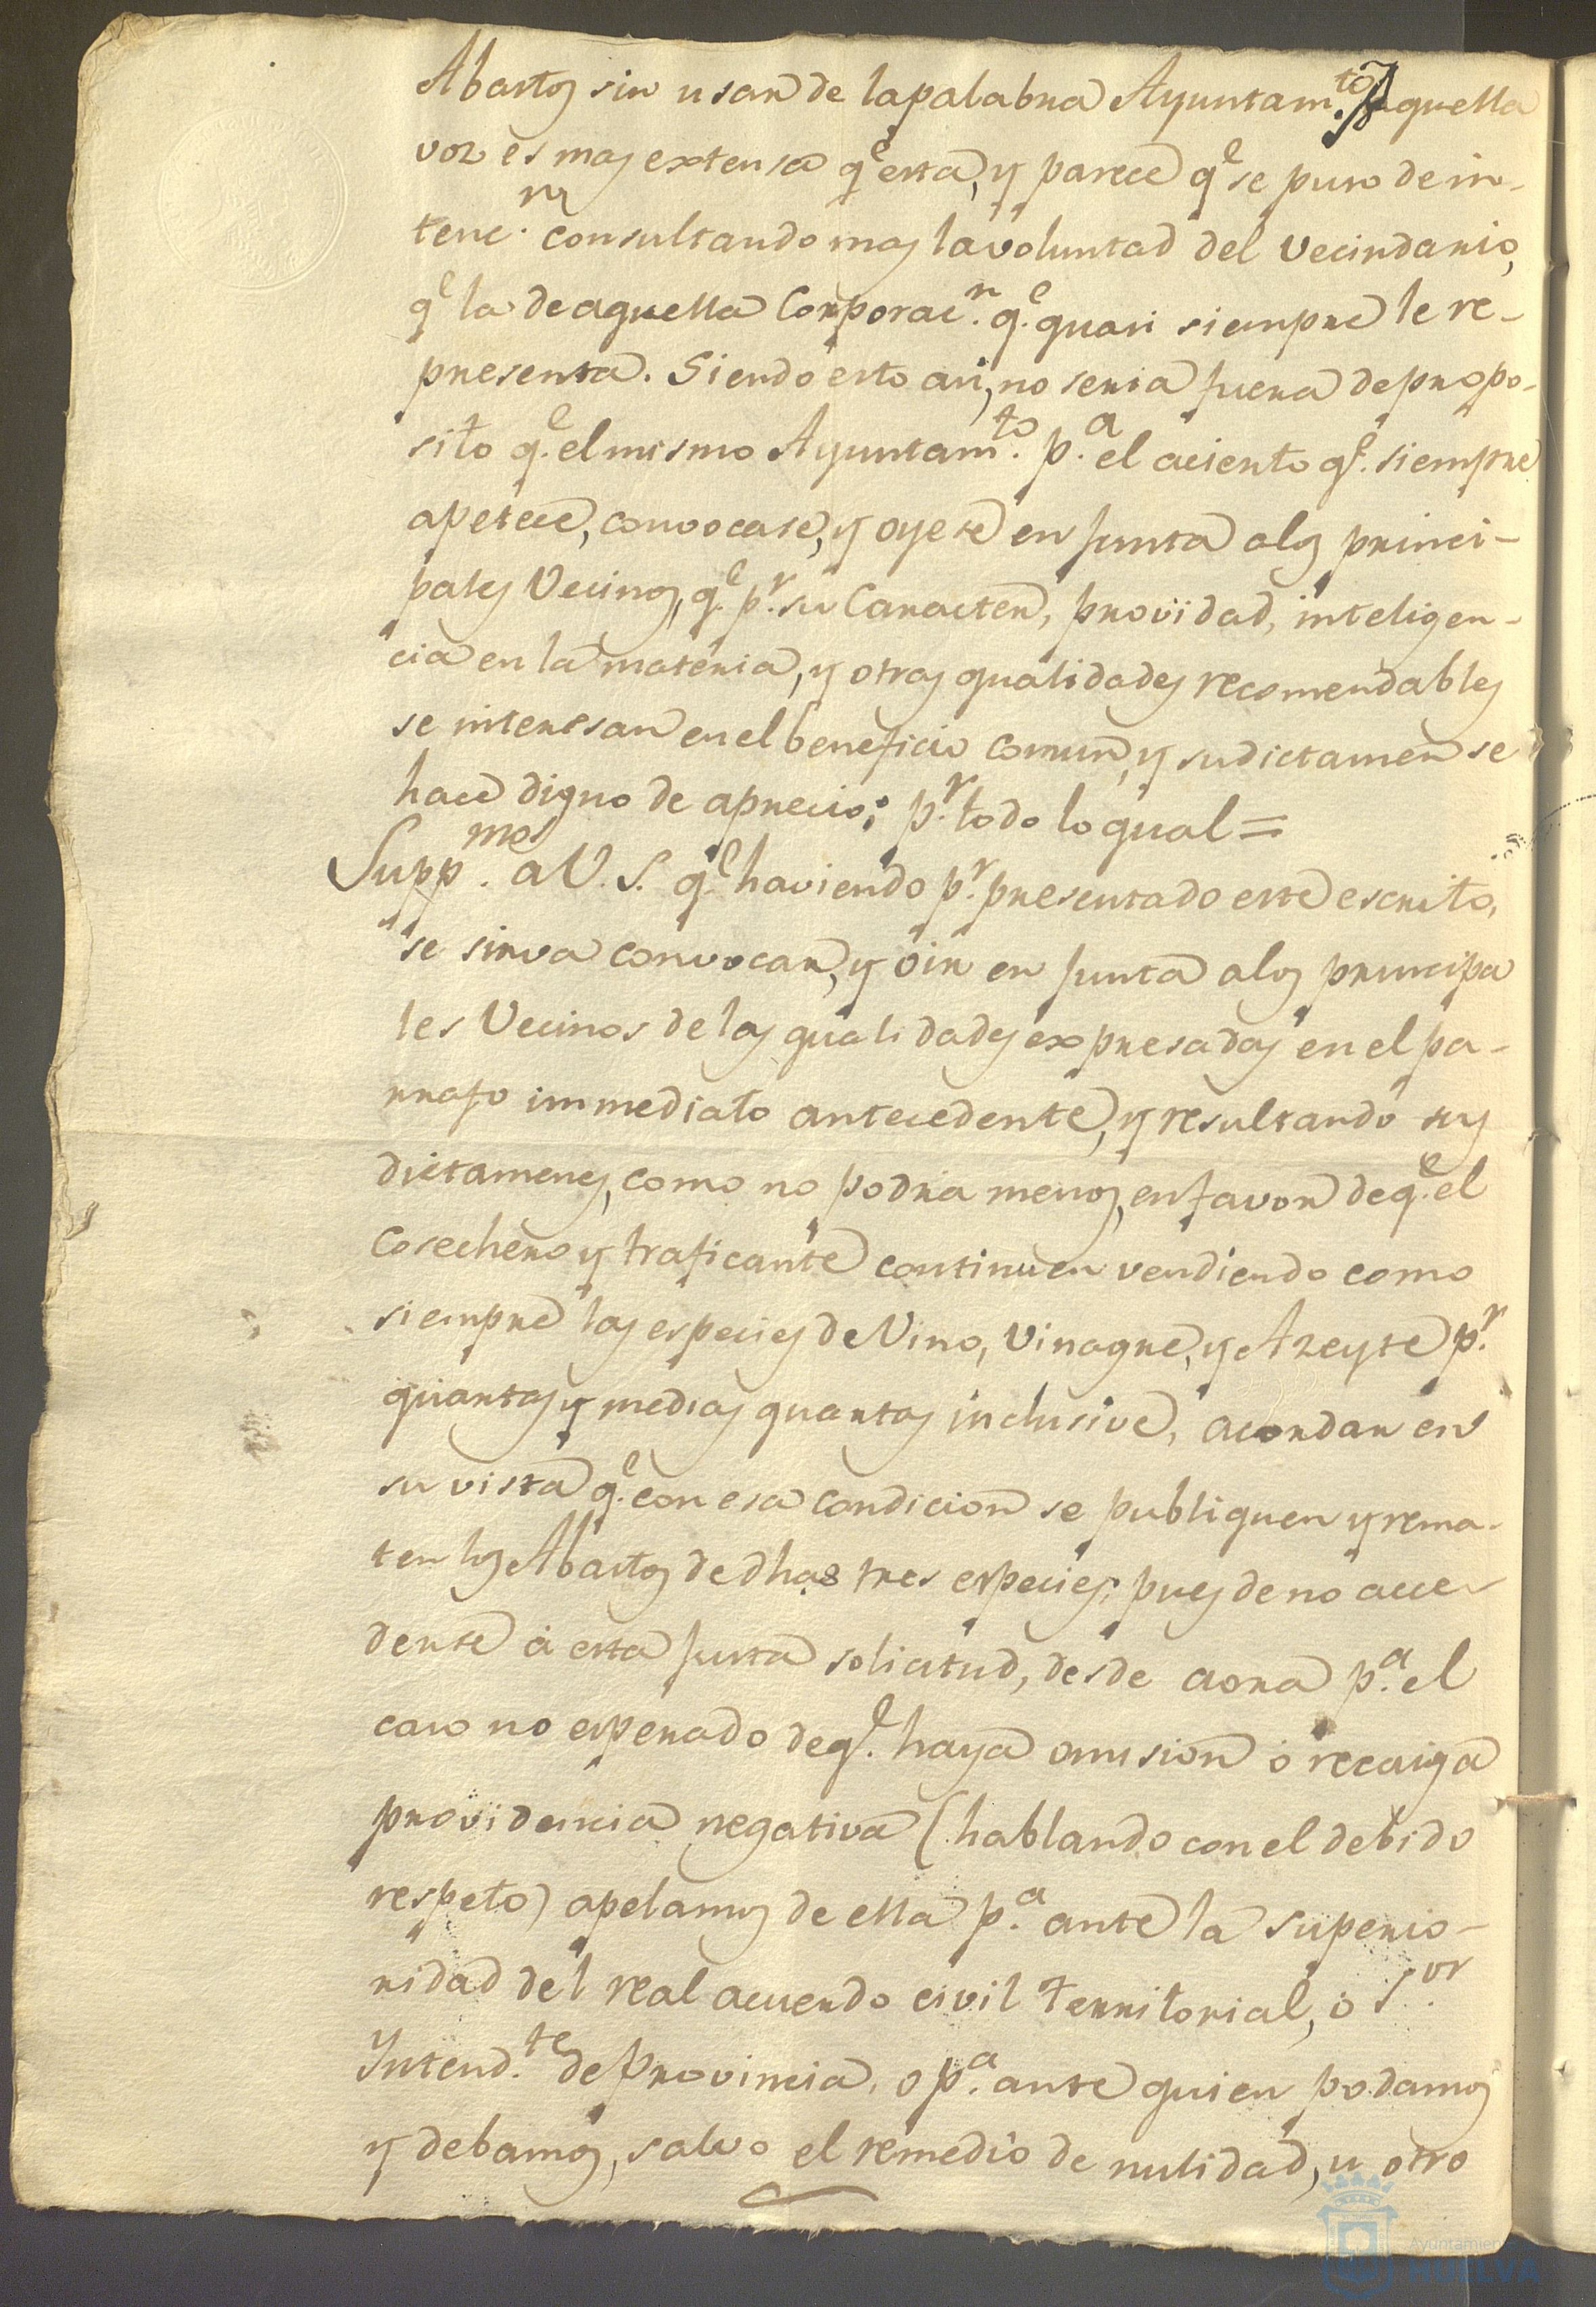 Abastos sin usar de la palabra Ayuntam.to, aquella
voz es mas extensa q.e esta, y parece q.e se puso de in-
tenc.n consultando mas la voluntad del vecindario,
q.e la de aquella Corporac.n q.e quasi siempre le re-
presenta. Siendo esto asi, no seria fuera de propo-
sito q.e el mismo Ayuntam.to p.a el acierto q.e siempre
apetece, convocase, y oyese en Junta a los princi-
pales Vecinos, q.e p.r su Caracter, providad, inteligen-
cia en la materia, y otras qualidades recomendables
se interesan en el beneficio comun, y su dictamen se
hace digno de aprecio; p.r todo lo qual =
Supp.mos a V. S. q.e haviendo p.r presentado este escrito,
se sirva convocar, y oir en Junta a los principa
les Vecinos de las qualidades expresadas en el pa-
rrafo immediato antecedente, y resultando sus
dictamenes, como no podria menos, en favor de q.e el
Cosechero y traficante continuen vendiendo como
siempre las especies de Vino, Vinagre, y Azeyte p.r
quartas y medias quartas inclusive, acordar en
su vista q.e con esa condicion se publiquen y rema-
ten los Abastos de dhas tres especies; pues de no acce-
derse á esta justa solicitud, desde aora p.a el
caso no esperado de q.e haya omision ó recaiga
providencia negativa (hablando con el debido
respeto) apelamos de ella p.a ante la superio-
ridad del real acuerdo civil territorial, ó S.or
Yntend.te de Provincia, o p.a ante quien podamos
y debamos, salvo el remedio de nulidad, u otro
Ayuntamiento
HUELVA